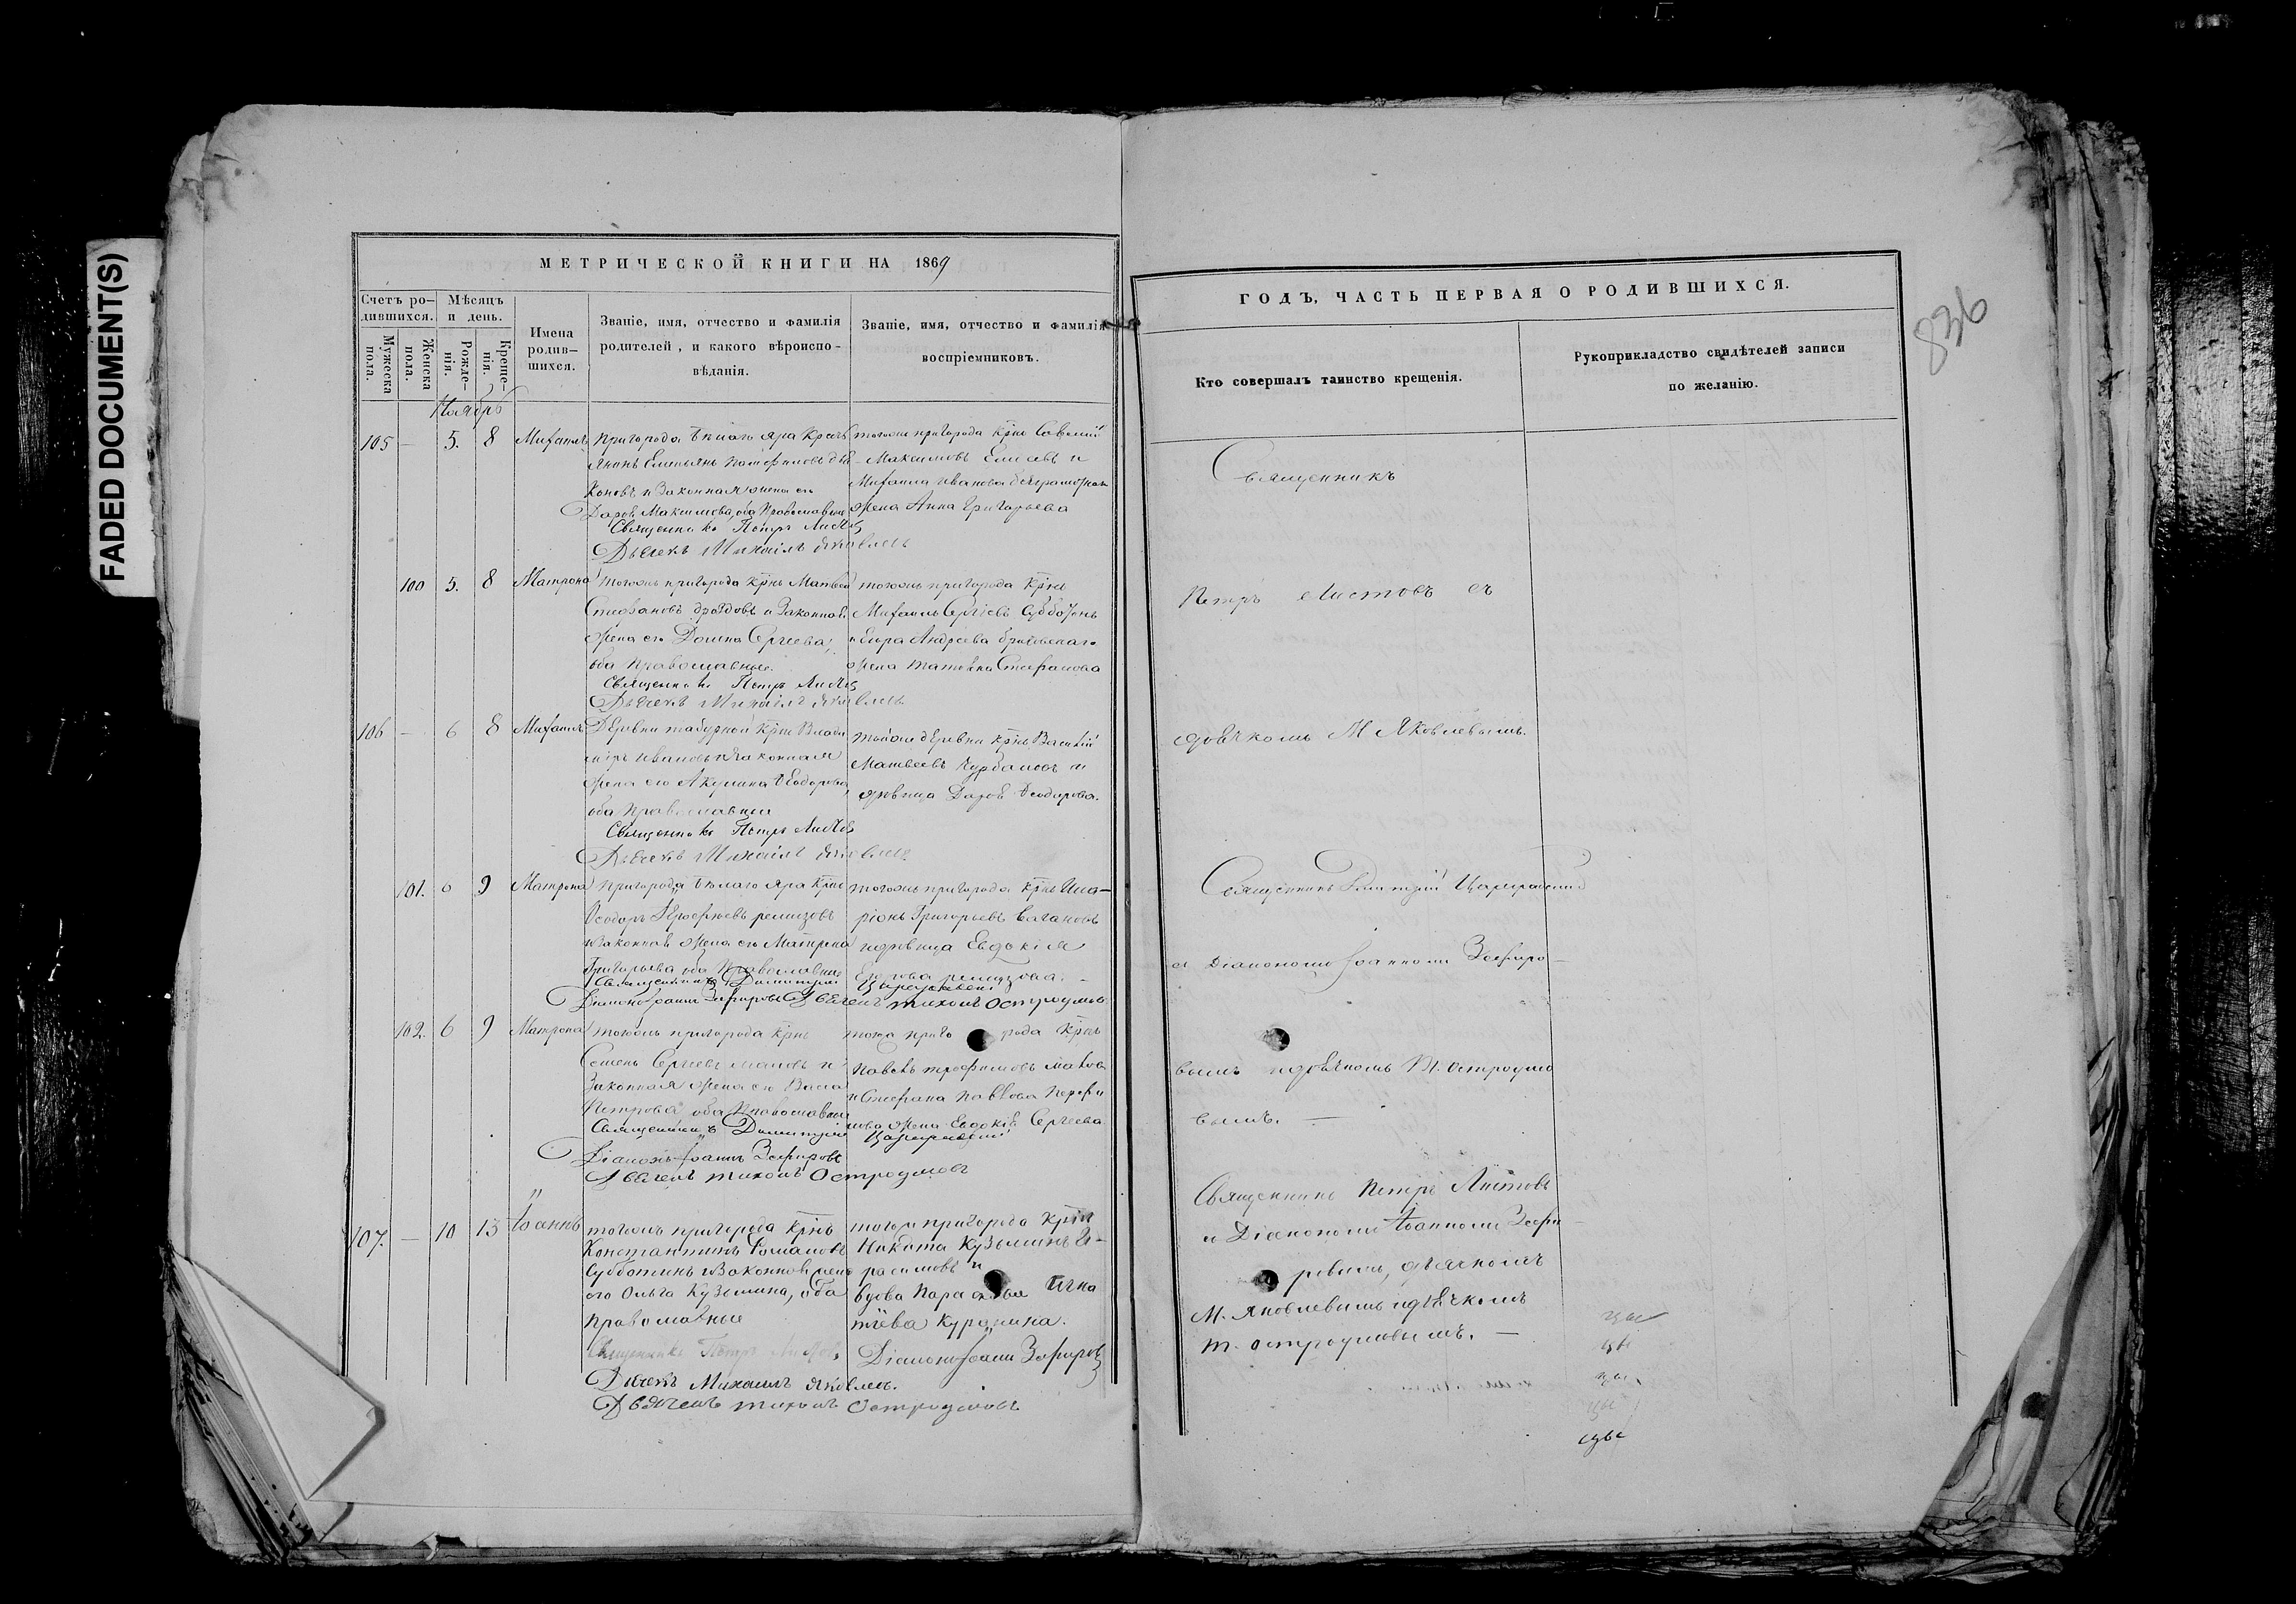 FADED DOCUMENT(S)
МЕТРИЧЕСКОЙ КНИГИ НА 1869
Счетъ ро-
дившихся.
Мужеска
пола.
Женска
пола.
Мѣсяцъ
и день.
Рожде-
нія.
Креще-
нія.
Имена
родив-
шихся.
Званіе, имя, отчество и фамилія
родителей, и какого вѣроиспо-
вѣданія.
Званіе, имя, отчество и фамилія
воспріемниковъ.
Ноябрь
105 — 5. 8 Михаилъ
Пригорода Бѣлаго Яра Крест
Жена его
Дарья Максимова, оба Православные
Священникъ Петръ Листовъ
Дьячекъ Михаилъ Яковлевъ
тогоже пригорода Крнъ
Максимовъ Елисѣевъ и
Михаила Иванова
жена Анна Григорьева
100 5. 8 Матрона
тогожъ пригорода Крнъ Матвей
Стефановъ Дроздовъ и Законная
жена его Домна Сергеева,
оба Православные.
Священникъ Петръ Листовъ
Дьячекъ Михаилъ Яковлевъ
тогожъ пригорода Крнъ
Михаилъ Сергіевъ Субботинъ
Андреева
жена Татьяна Стефанова
106 — 6 8 Михаилъ
Деревни Крнъ Влади
міръ Ивановъ и Законная
жена его Акулина Ѳеодорова,
оба Православные
Священникъ Петръ Листовъ
Дьячекъ Михаилъ Яковлевъ
тойже деревни Крнъ Василій
Матвеевъ Курбатовъ и
дѣвица Дарья Ѳеодорова.
101. 6 9 Матрона
Пригорода Бѣлаго Яра Крнъ
Ѳеодоръ Ремизовъ
и Законная жена его Матрена
Григорьева оба Православные
Священникъ Димитрій Цареградскій
Діаконъ Іоаннъ Зефировъ Дьячекъ Тихонъ Остроумовъ
тогожъ пригорода Крнъ Ила-
ріонъ Григорьевъ
и дѣвица Евдокія
Егорова Ремизова. —
102. 6 9 Матрона
тогожъ пригорода Крнъ
Семенъ Сергеевъ и
Законная жена его Васса
Петрова оба Православные
Священникъ Димитрій Цареградскій
Діаконъ Іоаннъ Зефировъ
Дьячекъ Тихонъ Остроумовъ
тогожъ пригорода Крнъ
Павелъ Трофимовъ
и Стефана Павлова
жена Евдокія Сергеева
107. — 10 13 Іоаннъ
тогожъ пригорода Крнъ
Константинъ Романовъ
Субботинъ и Законная жена
его Ольга Кузьмина, оба
Православные
Священникъ Петръ Листовъ
Дьячекъ Михаилъ Яковлевъ.
Дьячекъ Тихонъ Остроумовъ
тогоже пригорода Крнъ
Никита Кузьминъ Ге-
расимовъ и
вдова Параскева Игна
тіева Куранина.
Діаконъ Іоаннъ Зефировъ
ГОДЪ, ЧАСТЬ ПЕРВАЯ О РОДИВШИХСЯ.
836
Кто совершалъ таинство крещенія.
Рукоприкладство свидѣтелей записи
по желанію.
Священникъ
Петръ Листовъ съ
дьячкомъ М Яковлевымъ.
Священникъ Димитрій Цареградскій
съ Діакономъ Іоанномъ Зефиро-
вымъ и дьячкомъ Т. Остроумо
вымъ. —
Священникъ Петръ Листовъ
съ Діакономъ Іоанномъ Зефи-
ровымъ, дьячкомъ
М. Яковлевымъ и дьячкомъ
Т. Остроумовымъ. —